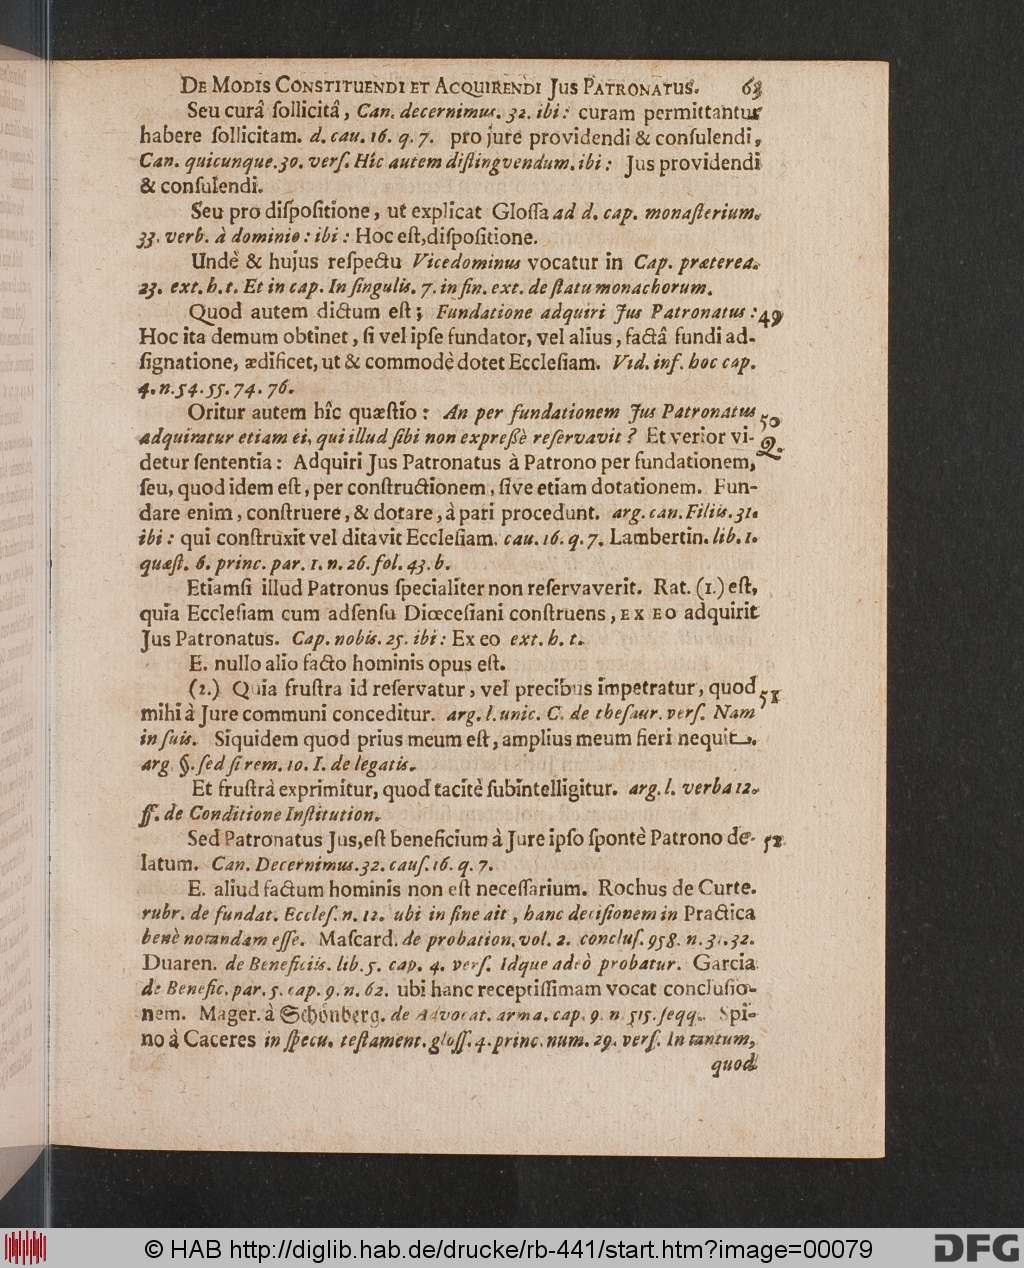 De Modis Constituendi et Acquirendi Jus Patronatus. 63
Seu curâ ſollicitâ, Can. decernimus. 32. ibi: curam permittantur
habere ſollicitam. d. cau. 16. q. 7. pro jure providendi & conſulendi,
Can. quicunque.30. verſ. Hîc autem diſtingvendum. ibi: Jus providendi
& conſulendi.
Seu pro diſpoſitione, ut explicat Gloſſa ad d. cap. monaſterium.
33. verb. à dominio: ibi: Hoc eſt, diſpoſitione.
Undè & hujus reſpectu Vicedominus vocatur in Cap. præterea.
23. ext. h. t. Et in cap. In ſingulis. 7. in fin. ext. de ſtatu monachorum.
Quod autem dictum eſt; Fundatione adquiri Jus Patronatus: 49
Hoc ita demum obtinet, ſi vel ipſe fundator, vel alius, factâ fundi ad-
ſignatione, ædificet, ut & commodè dotet Eccleſiam. Vid. inf. hoc cap.
4. n. 54. 55. 74. 76.
Oritur autem hîc quæſtio: An per fundationem Jus Patronatus 50
adquiratur etiam ei, qui illud ſibi non expreßè reſervavit? Et verior vi- Q.
detur ſententia: Adquiri Jus Patronatus à Patrono per fundationem,
ſeu, quod idem eſt, per conſtructionem, ſive etiam dotationem. Fun-
dare enim, conſtruere, & dotare, à pari procedunt. arg. can. Filiis. 31.
ibi: qui conſtruxit vel ditavit Eccleſiam. cau. 16. q. 7. Lambertin. lib. 1.
quæſt. 6. princ. par. 1. n. 26. fol. 43. b.
Etiamſi illud Patronus ſpecialiter non reſervaverit. Rat. (1.) eſt,
quia Eccleſiam cum adſenſu Diœceſiani conſtruens, EX EO adquirit
Jus Patronatus. Cap. nobis. 25. ibi: Ex eo ext. h. t.
E. nullo alio facto hominis opus eſt.
(2.) Quia fruſtra id reſervatur, vel precibus impetratur, quod 51
mihi à Jure communi conceditur. arg. l. unic. C. de theſaur. verſ. Nam
in ſuis. Siquidem quod prius meum eſt, amplius meum fieri nequit.
arg. §. ſed ſi rem. 10. I. de legatis.
Et fruſtrà exprimitur, quod tacitè ſubintelligitur. arg. l. verba 12.
ff. de Conditione Inſtitution.
Sed Patronatus Jus, eſt beneficium à Jure ipſo ſpontè Patrono de- 52
latum. Can. Decernimus. 32. cauſ. 16. q. 7.
E. aliud factum hominis non eſt neceſſarium. Rochus de Curte.
rubr. de fundat. Eccleſ. n. 12. ubi in fine ait, hanc deciſionem in Practica
benè notandam eſſe. Maſcard. de probation. vol. 2. concluſ. 958. n. 31. 32.
Duaren. de Beneficiis. lib. 5. cap. 4. verſ. Idque adeò probatur. Garcia
de Benefic. par. 5. cap. 9. n. 62. ubi hanc receptiſſimam vocat concluſio-
nem. Mager. à Schönberg. de Advocat. arma. cap. 9. n. 515. ſeqq. Spi-
no à Caceres in ſpecu. teſtament. gloſſ. 4. princ. num. 29. verſ. In tantum,
quod
© HAB http://diglib.hab.de/drucke/rb-441/start.htm?image=00079
DFG